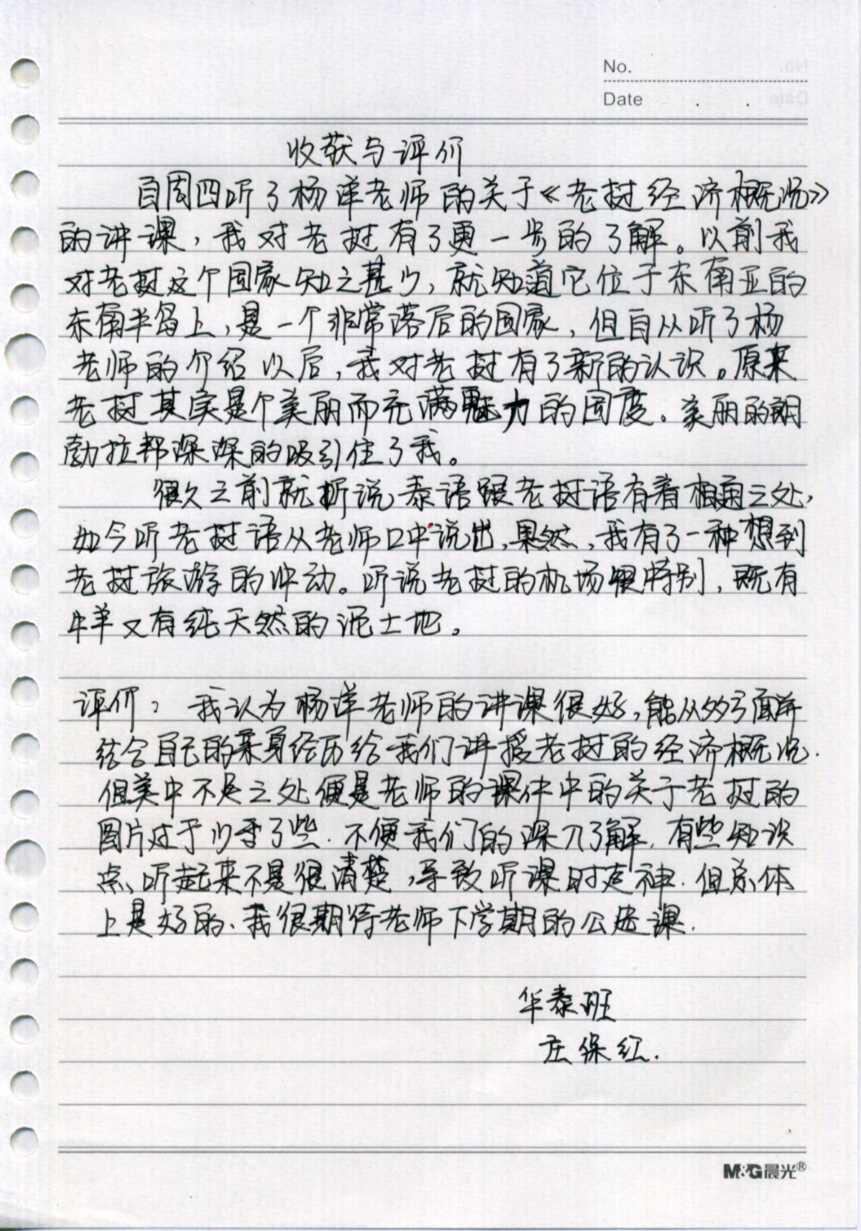 No.
Date
收获与评价
自周四听了杨洋老师的关于《老挝经济概况》
的讲课，我对老挝有了更一步的了解。以前我
对老挝这个国家知之甚少，就知道它位于东南亚的
东南半岛上，是一个非常落后的国家，但自从听了杨
老师的介绍以后，我对老挝有了新的认识。原来
老挝其实是个美丽而充满魅力的国度。美丽的朗
勃拉邦深深的吸引住了我。
很久之前就听说泰语跟老挝语有着相通之处，
如今听老挝语从老师口中说出，果然，我有了一种想到
老挝旅游的冲动。听说老挝的机场很特别，既有
牛羊又有纯天然的泥土地。
评价：我认为杨洋老师的讲课很好，能从多方面并
结合自己的亲身经历给我们讲授老挝的经济概况.
但美中不足之处便是老师的课件中的关于老挝的
图片过于少了些.不便我们的深入了解.有些知识
点、听起来不是很清楚，导致听课时走神.但总体
上是好的.我很期待老师下学期的公选课.
华泰班
庄保红.
M&G晨光®